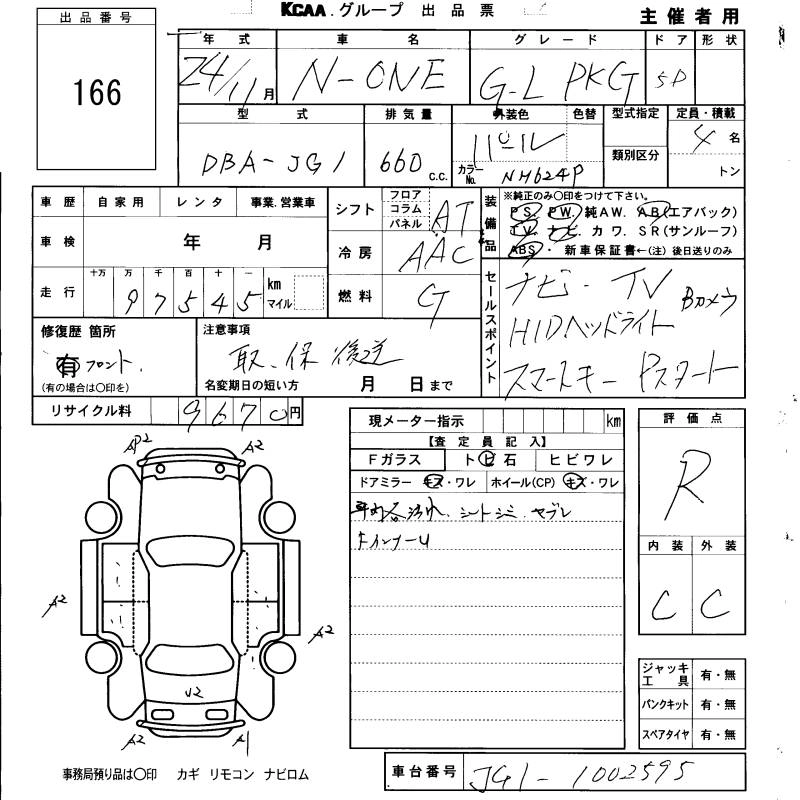 KCAA.グループ 出品票
主催者用
出品番号
166
年式 車名 グレード ドア 形状
24/11月 N-ONE G-L PKG 5D
型式 排気量 外装色 色替 型式指定 定員・積載
DBA-JG1 660 c.c. パール 類別区分 4名
カラーNo. NH624P トン
車歴 自家用 レンタ 事業.営業車
車検 年 月
走行 十万 万 千 百 十 一
97545 km マイル
シフト フロア コラム パネル AT
冷房 AAC
燃料 G
装備品 ※純正のみ○印をつけて下さい。
PS. PW. 純AW. AB(エアバック)
TV. ナビ. カワ. SR(サンルーフ)
ABS・ 新車保証書←(注)後日送りのみ
セールスポイント
ナビ・TV Bカメラ
HIDヘッドライト
スマートキー Pスタート
修復歴 箇所
有 フロント.
(有の場合は○印を)
注意事項
取.保 後送
名変期日の短い方 月 日まで
リサイクル料 9670円
現メーター指示 km
【査定員記入】
Fガラス トビ石 ヒビワレ
ドアミラー キズ・ワレ ホイール(CP) キズ・ワレ
シートシミ. ヤブレ
FインナーU
評価点
R
内装 外装
C C
AP2 A2
A2
A2
U2
A2 A1
ジャッキ工具 有・無
パンクキット 有・無
スペアタイヤ 有・無
事務局預り品は○印 カギ リモコン ナビロム
車台番号 JG1-1002595